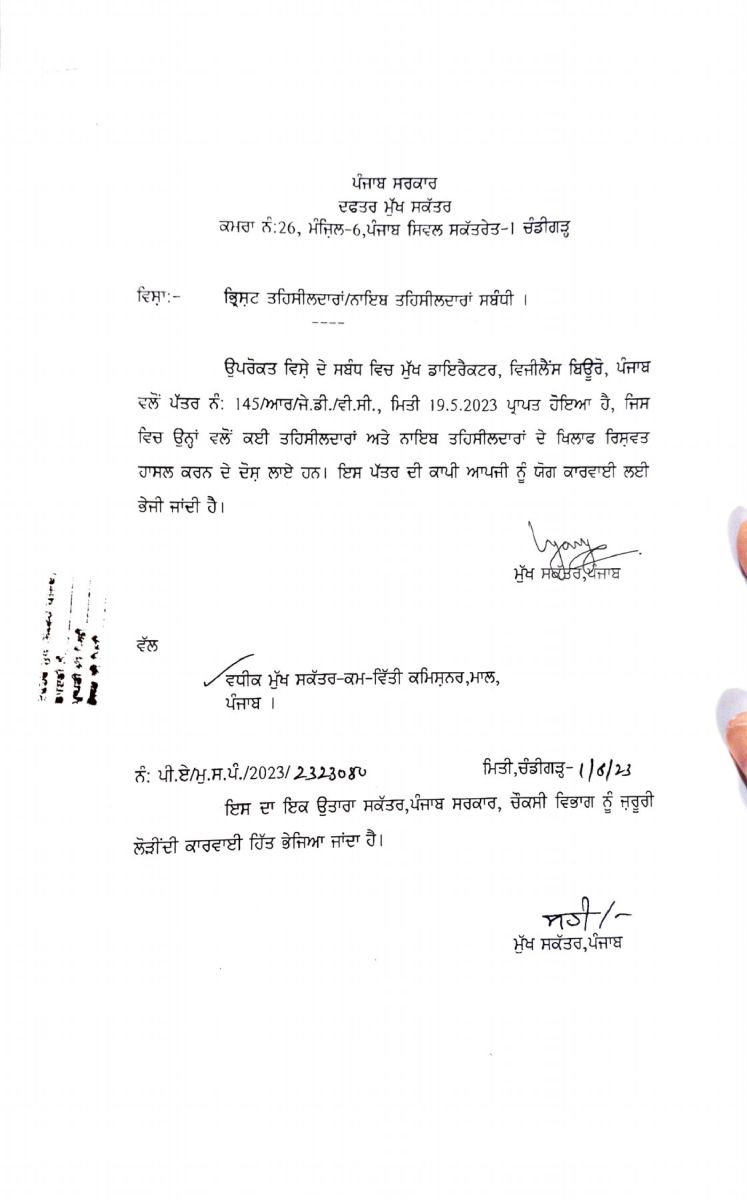 ਪੰਜਾਬ ਸਰਕਾਰ
ਦਫਤਰ ਮੁੱਖ ਸਕੱਤਰ
ਕਮਰਾ ਨੰ:26, ਮੰਜ਼ਿਲ-6,ਪੰਜਾਬ ਸਿਵਲ ਸਕੱਤਰੇਤ-1 ਚੰਡੀਗੜ੍ਹ
ਵਿਸ਼ਾ:- ਭ੍ਰਿਸ਼ਟ ਤਹਿਸੀਲਦਾਰਾਂ/ਨਾਇਬ ਤਹਿਸੀਲਦਾਰਾਂ ਸਬੰਧੀ ।
----
ਉਪਰੋਕਤ ਵਿਸ਼ੇ ਦੇ ਸਬੰਧ ਵਿਚ ਮੁੱਖ ਡਾਇਰੈਕਟਰ, ਵਿਜੀਲੈਂਸ ਬਿਊਰੋ, ਪੰਜਾਬ
ਵਲੋਂ ਪੱਤਰ ਨੰ: 145/ਆਰ/ਜੇ.ਡੀ./ਵੀ.ਸੀ., ਮਿਤੀ 19.5.2023 ਪ੍ਰਾਪਤ ਹੋਇਆ ਹੈ, ਜਿਸ
ਵਿਚ ਉਨ੍ਹਾਂ ਵਲੋਂ ਕਈ ਤਹਿਸੀਲਦਾਰਾਂ ਅਤੇ ਨਾਇਬ ਤਹਿਸੀਲਦਾਰਾਂ ਦੇ ਖਿਲਾਫ ਰਿਸ਼ਵਤ
ਹਾਸਲ ਕਰਨ ਦੇ ਦੋਸ਼ ਲਾਏ ਹਨ। ਇਸ ਪੱਤਰ ਦੀ ਕਾਪੀ ਆਪਜੀ ਨੂੰ ਯੋਗ ਕਾਰਵਾਈ ਲਈ
ਭੇਜੀ ਜਾਂਦੀ ਹੈ।
ਮੁੱਖ ਸਕੱਤਰ,ਪੰਜਾਬ
ਵੱਲ
ਵਧੀਕ ਮੁੱਖ ਸਕੱਤਰ-ਕਮ-ਵਿੱਤੀ ਕਮਿਸ਼ਨਰ,ਮਾਲ,
ਪੰਜਾਬ ।
ਨੰ: ਪੀ.ਏ/ਮੁ.ਸ.ਪੰ./2023/2323080 ਮਿਤੀ,ਚੰਡੀਗੜ੍ਹ-1/6/23
ਇਸ ਦਾ ਇਕ ਉਤਾਰਾ ਸਕੱਤਰ,ਪੰਜਾਬ ਸਰਕਾਰ, ਚੌਕਸੀ ਵਿਭਾਗ ਨੂੰ ਜ਼ਰੂਰੀ
ਲੋੜੀਂਦੀ ਕਾਰਵਾਈ ਹਿੱਤ ਭੇਜਿਆ ਜਾਂਦਾ ਹੈ।
ਸਹੀ/-
ਮੁੱਖ ਸਕੱਤਰ,ਪੰਜਾਬ